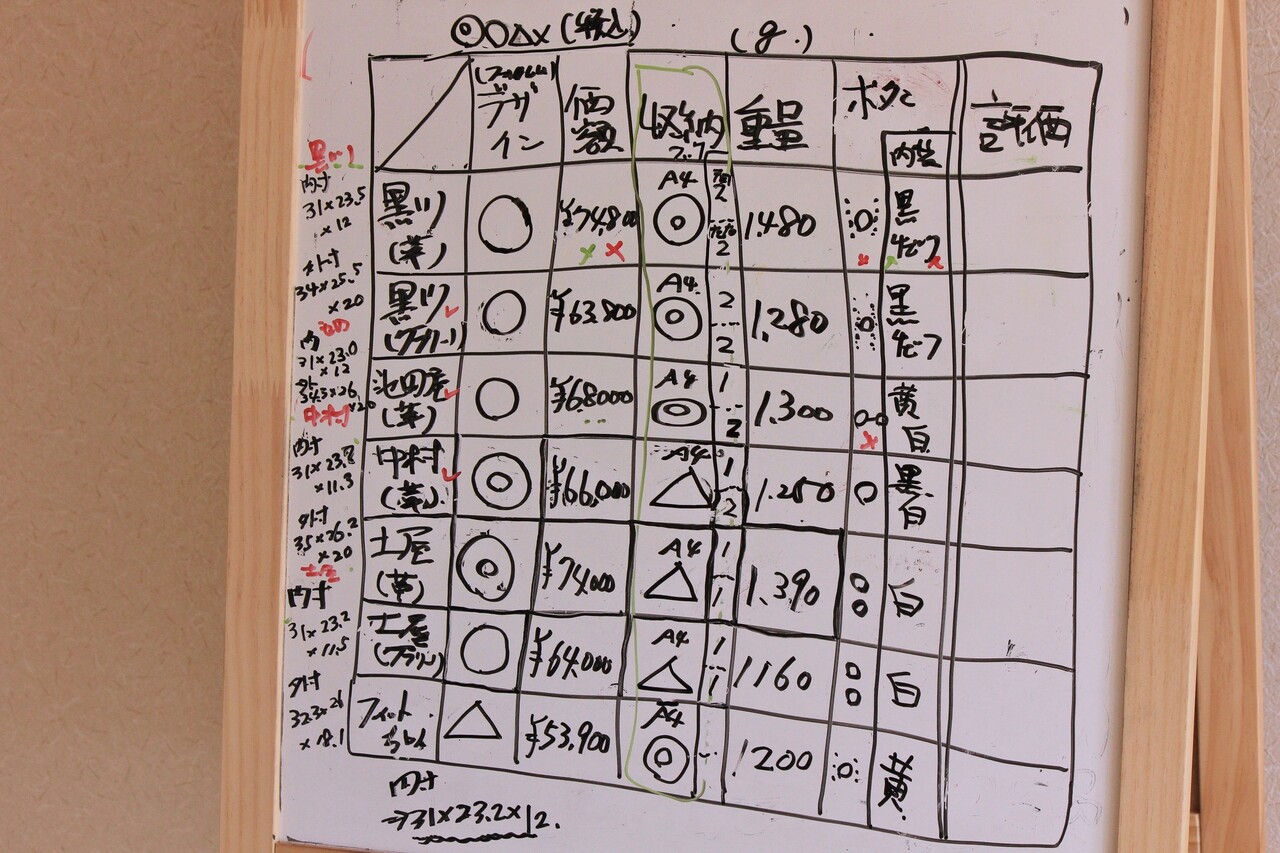 ◎○△×(税込) (g.)
デザイン 価額 収納 重量 ボタン 評価
フック 内装
黒川(革) ○ ¥74,800 A4 ◎ 2 2 1.480 黒 ×
黒川 ○ ¥63,800 A4 ◎ 2 2 1.280 黒
池田屋(革) ○ ¥68000 A4 ◎ 1 2 1.300 黄 白
中村(革) ◎ ¥66,000 A4 △ 1 2 1.250 黒 白
土屋(革) ◎ ¥74,000 A4 △ 1 1 1.390 白
土屋 ○ ¥64,000 A4 △ 1 1 1160 白
フィットちゃん △ ¥53,900 A4 ◎ 1200 黄
内寸
⇒31×23.2×12.
内寸
31×23.5
×12
外寸
34×25.5
×20
内
31×23.0
×12
外
34.5×26
×20
中村
内寸
31×23.8
×11.3
外寸
35×26.2
×20
土屋
内寸
31×23.2
×11.5
外寸
32.3×26
×18.1